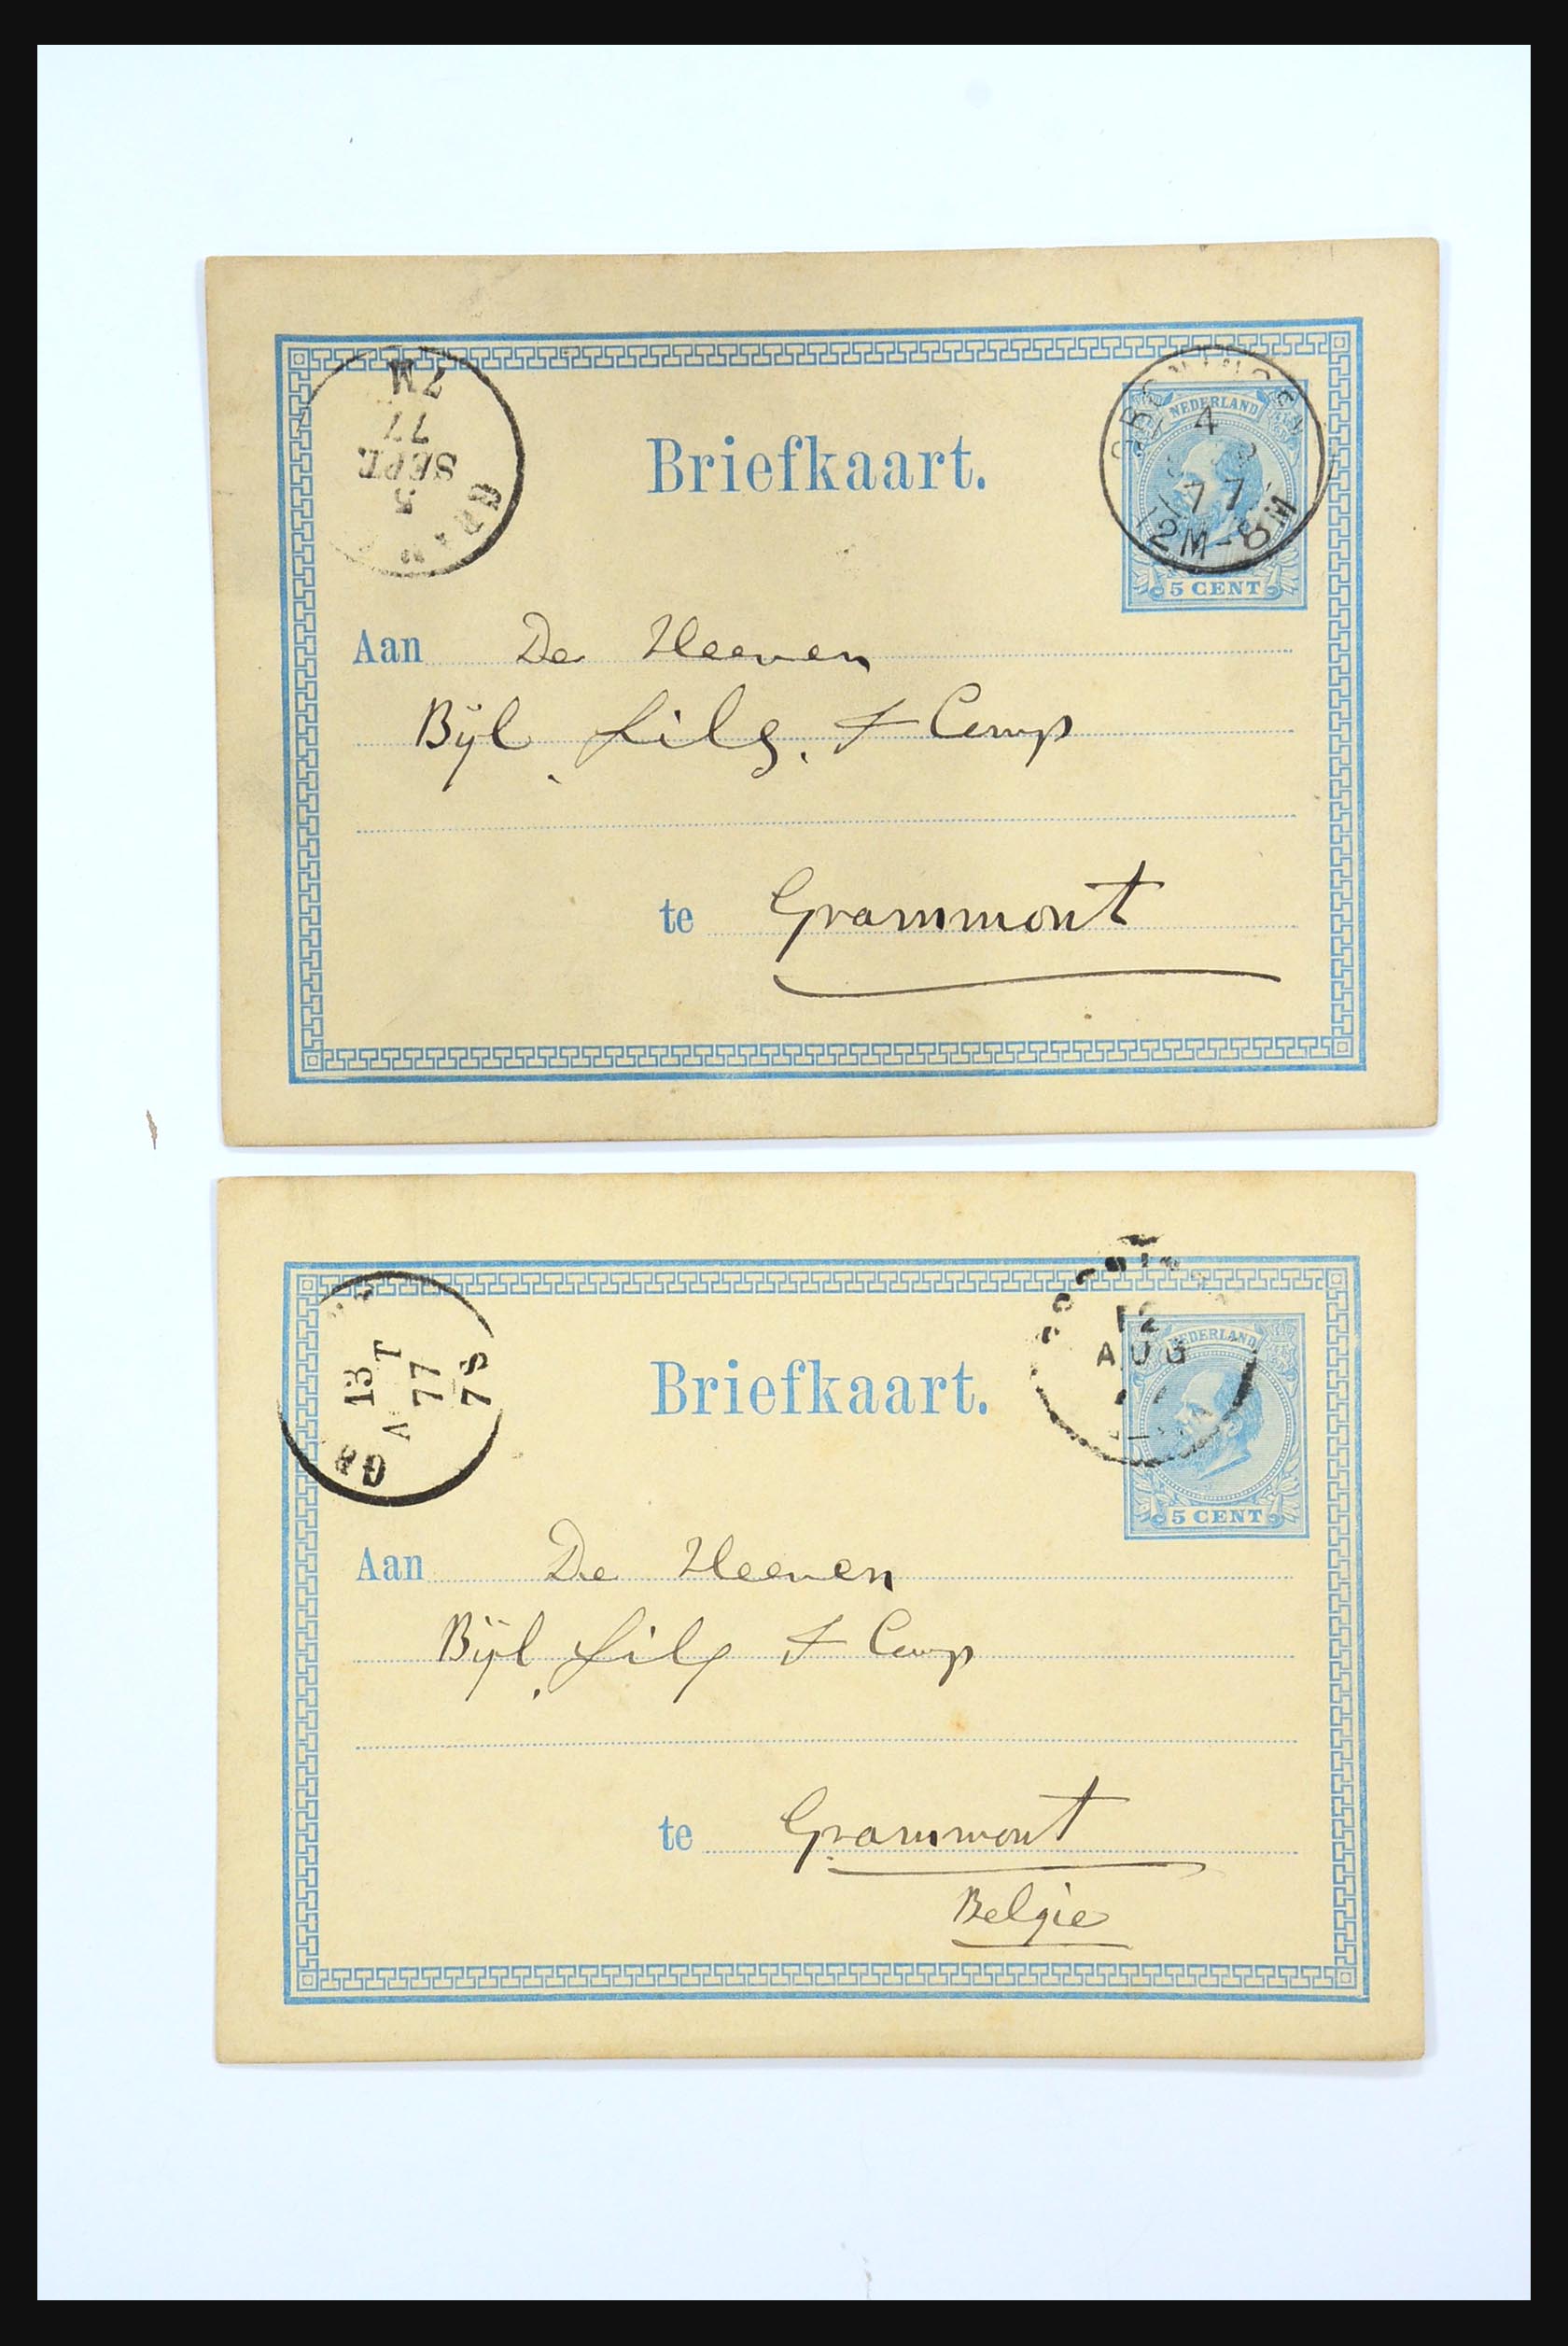 7M
77
SEPT.
5
GRA
GRONINGEN
4
77
12M-8M
NEDERLAND
5 CENT
Briefkaart.
Aan De Heeren
Bÿl. fils. & Comp
te Grammont
13
77
7S
GR
12
AUG
NEDERLAND
5 CENT
Briefkaart.
Aan De Heeren
Bÿl. fils & Comp
te Grammont
Belgie